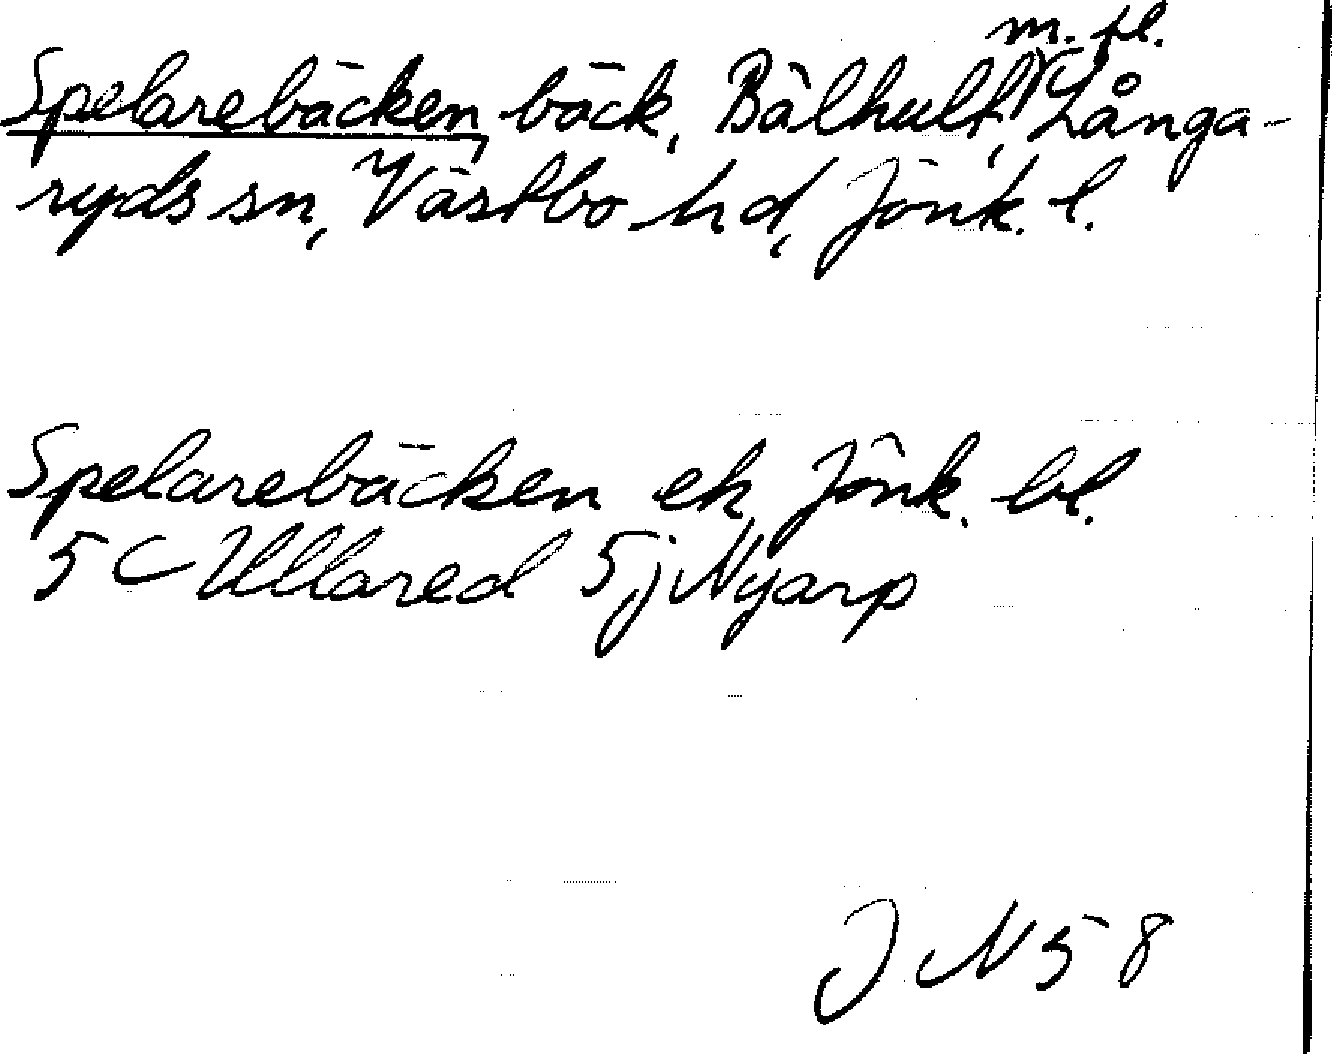 Spelarebäcken, bäck, Bälhult, m. fl. Långa-
ryds sn, Västbo hd, Jönk. l.
Spelarebäcken ek Jönk. bl.
5 C Ullared 5j Nyarp
J N 58